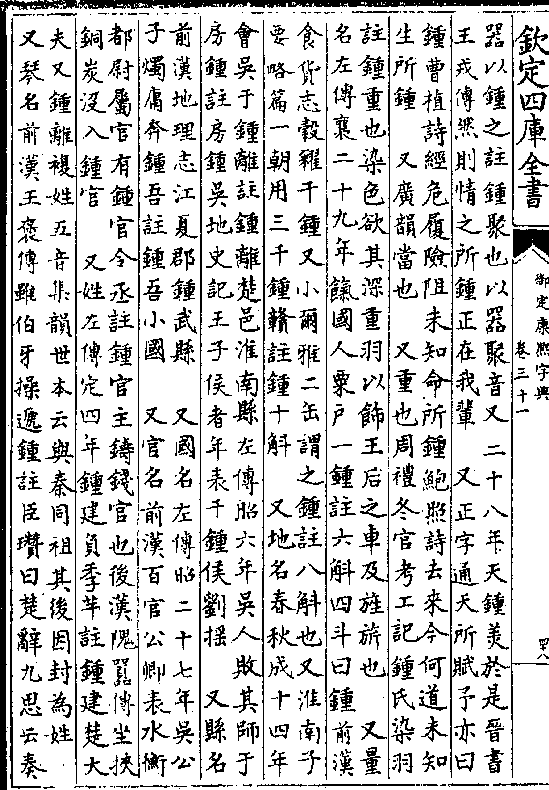 欽定四庫全書
御定康熙字典
卷三十一
罕八
器以鍾之註鍾聚也以器聚音又二十八年天鍾美於是晉書
王戎傳然則情之所鍾正在我輩 又正字通天所賦予亦曰
鍾曹植詩經危履險阻未知命所鍾鮑照詩去來今何道未知
生所鍾 又廣韻當也 又重也周禮冬官考工記鍾氏染羽
註鍾重也染色欲其深重羽以飾王后之車及旌旂也 又量
名左傳襄二十九年餼國人粟戶一鍾註六斛四斗曰鍾前漢
食貨志穀糴千鍾又小爾雅二缶謂之鍾註八斛也又淮南子
要略篇一朝用三千鍾贛註鍾十斛 又地名春秋成十四年
會吳于鍾離註鍾離楚邑淮南縣左傳昭六年吳人敗其師于
房鍾註房鍾吳地史記王子侯者年表千鍾侯劉揺 又縣名
前漢地理志江夏郡鍾武縣 又國名左傳昭二十七年吳公
子燭庸奔鍾吾註鍾吾小國 又官名前漢百官公卿表水衡
都尉屬官有鍾官令丞註鍾官主鑄錢官也後漢隗囂傳坐挾
銅炭沒入鍾官 又姓左傳定四年鍾建負季羋註鍾建楚大
夫又鍾離複姓五音集韻世本云與秦同祖其後因封為姓
又琴名前漢王褒傳雖伯牙操遞鍾註臣瓚曰楚辭九思云奏